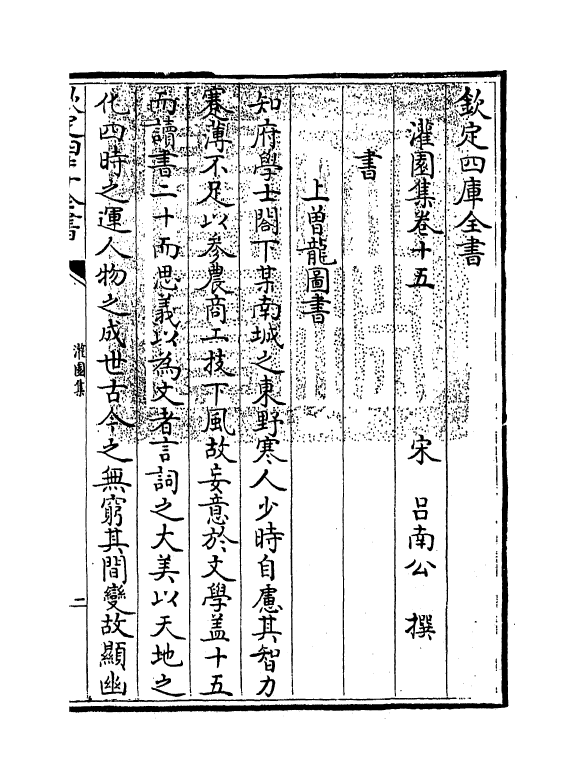 欽定四庫全書
灌園集卷十五
宋 呂南公 撰
書
上曾龍圖書
知府學士閣下某南城之東野寒人少時自慮其智力
蹇薄不足以參農商工技下風故妄意於文學盖十五
而讀書二十而思義以為文者言詞之大美以天地之
化四時之運人物之成世古今之無窮其間變故顯幽
欽定四庫全書
灌園集
二